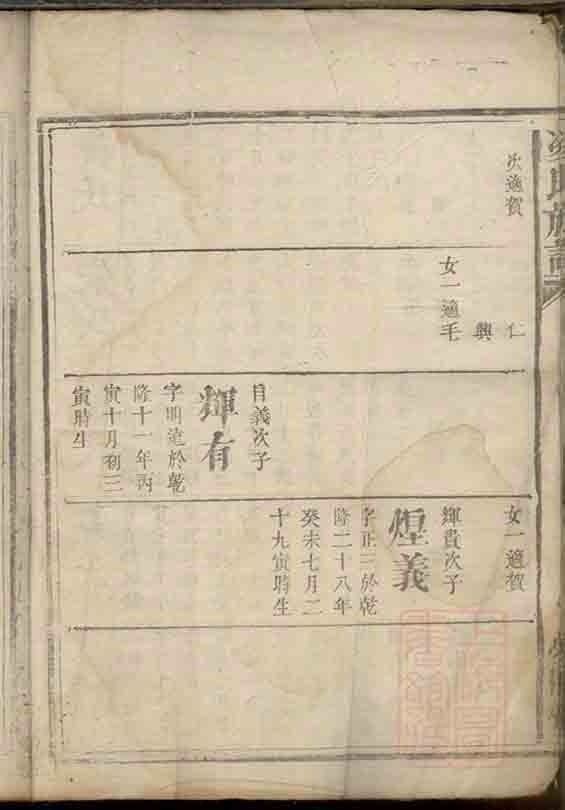 氏族譜
次適賀
仁
興
女一適毛
目義次子
輝有
字明遠於乾
隆十一年丙
寅十月初三
寅時生
女一適賀
輝貴次子
煌義
字正三於乾
隆二十八年
癸未七月二
十九寅時生